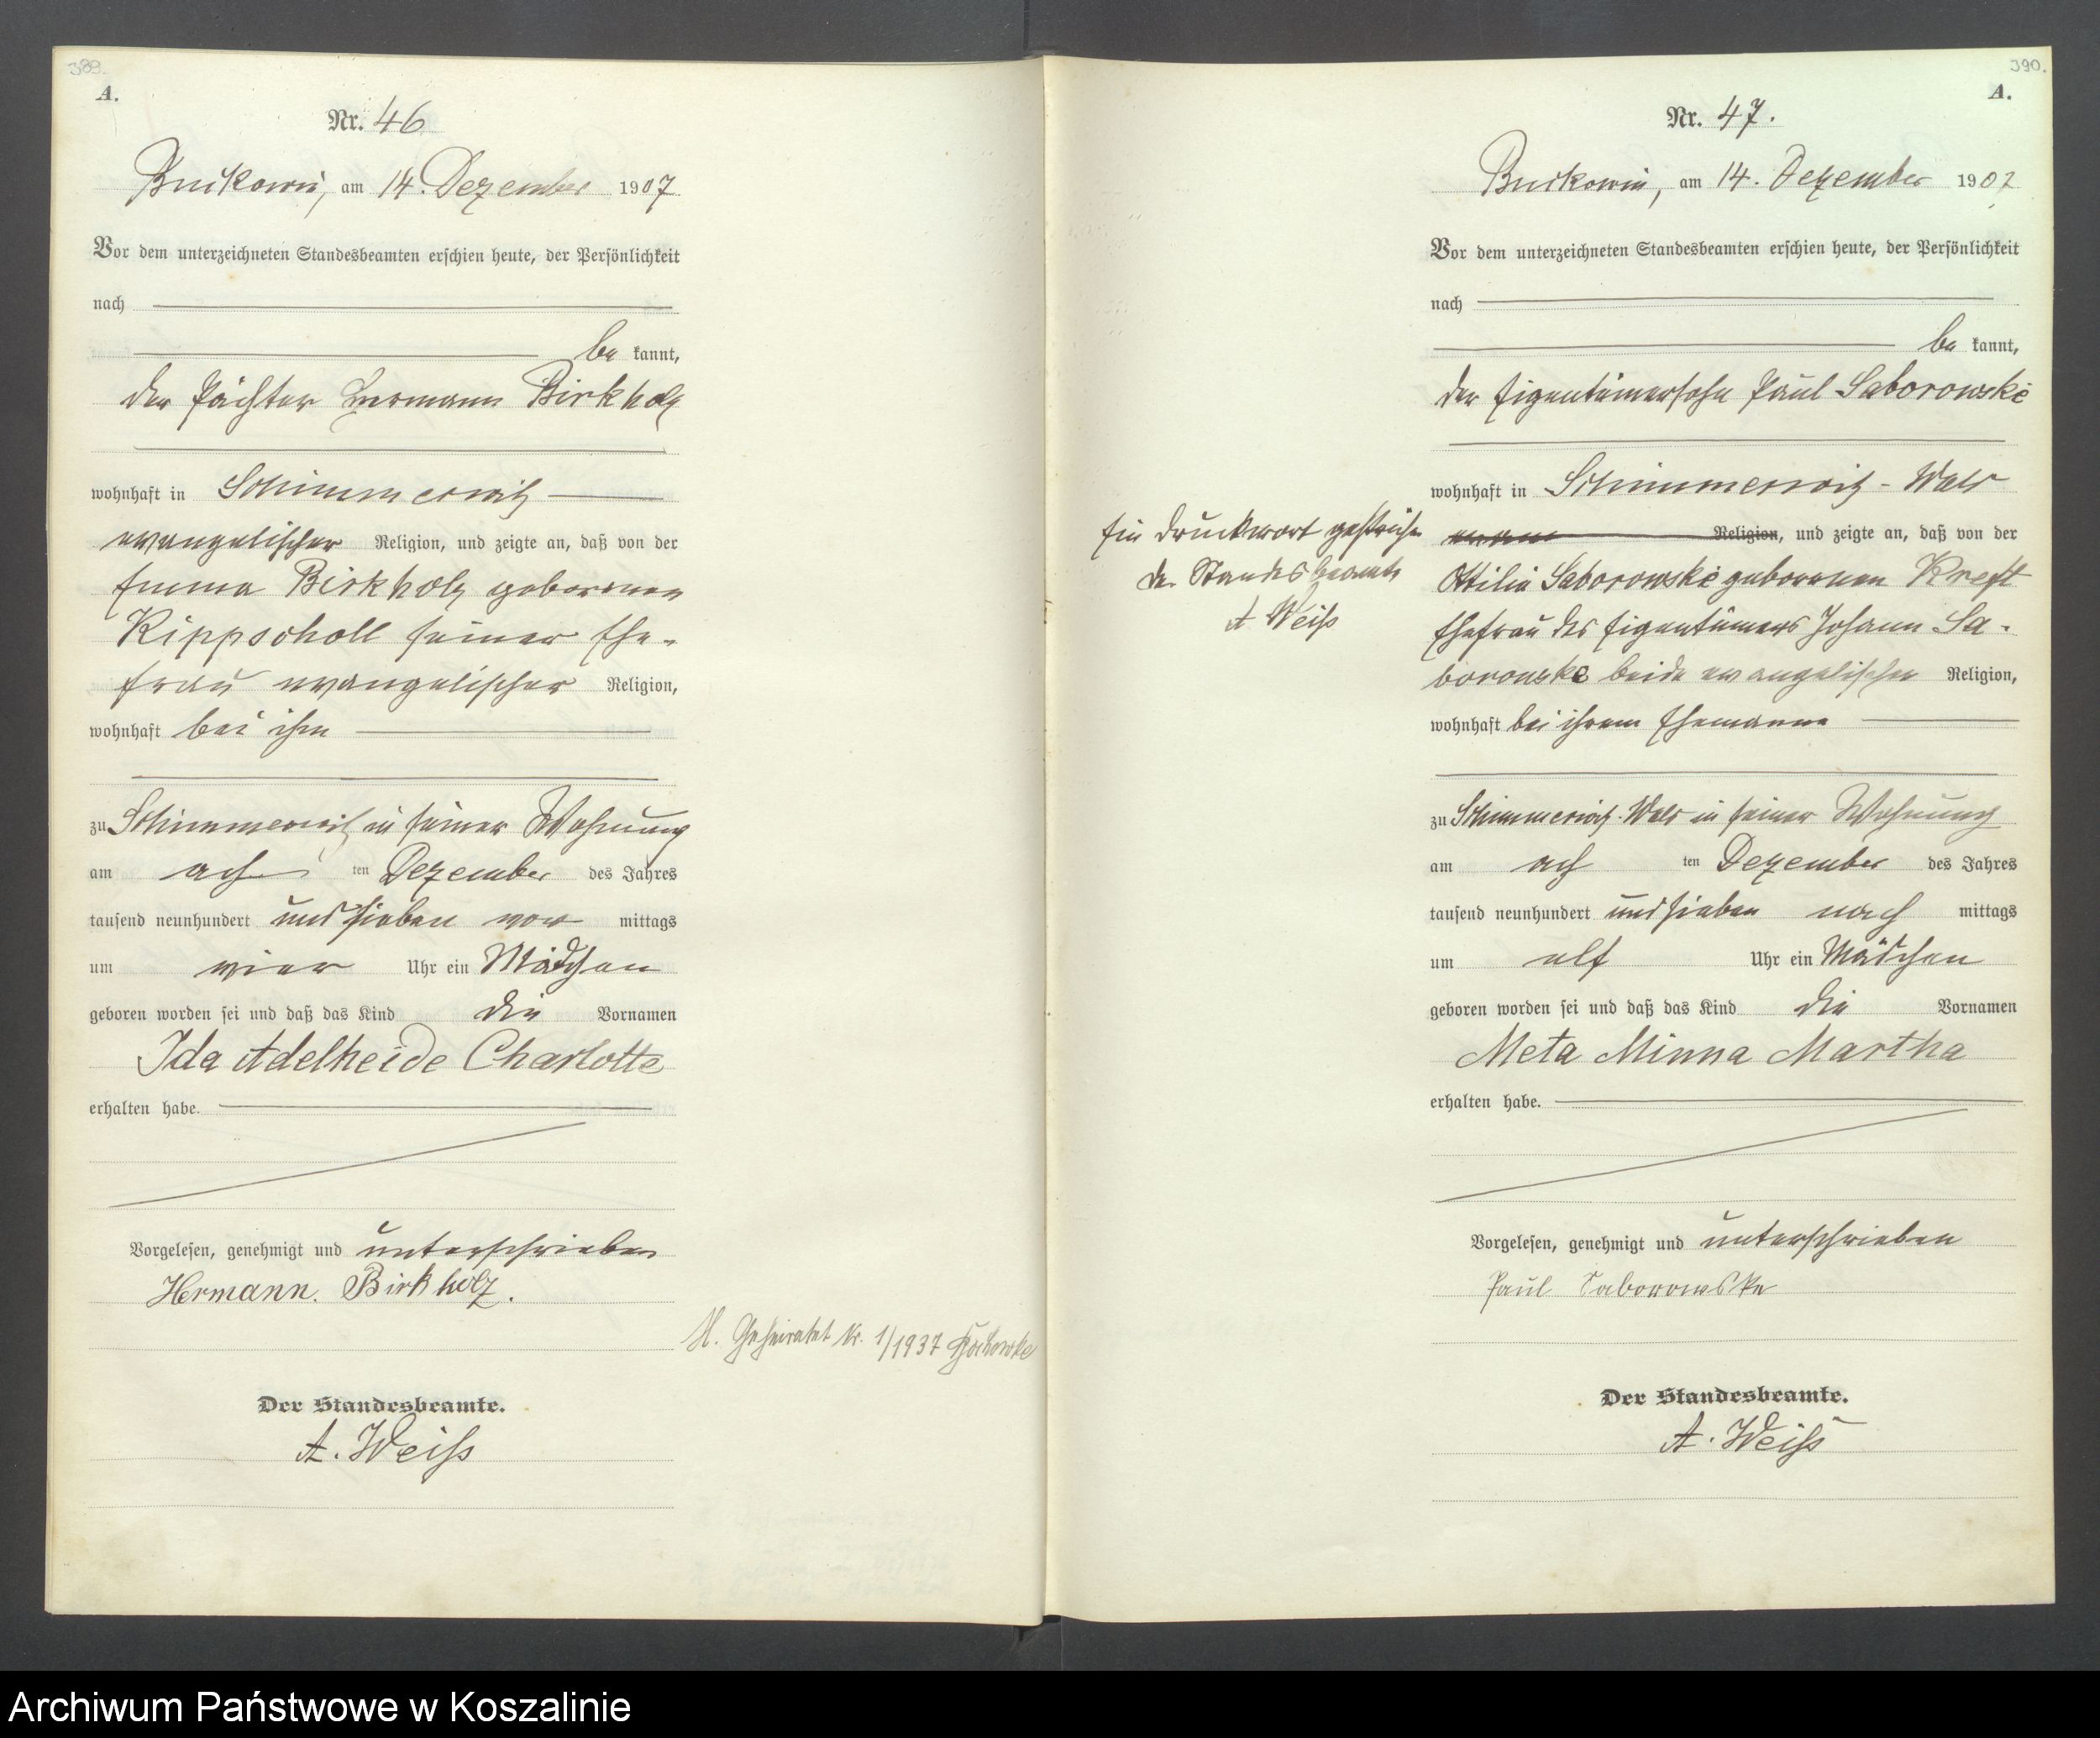 389.
A.
Nr. 46
Buckowin, am 14. Dezember 1907
Vor dem unterzeichneten Standesbeamten erschien heute, der Persönlichkeit
nach
be kannt,
der Pächter Hermann Birkholz
wohnhaft in Schimmerwitz
evangelischer Religion, und zeigte an, daß von der
Emma Birkholz geborenen
Kippscholl seiner Ehe-
frau evangelischer Religion,
wohnhaft bei ihm
zu Schimmerwitz in seiner Wohnung
am acht ten Dezember des Jahres
tausend neunhundert und sieben vor mittags
um vier Uhr ein Mädchen
geboren worden sei und daß das Kind die Vornamen
Ida Adelheide Charlotte
erhalten habe.
Vorgelesen, genehmigt und unterschrieben
Hermann. Birkholz.
H. Geheiratet Nr. 1/1937
Der Standesbeamte.
A. Weiß
390.
A.
Nr. 47.
Buckowin, am 14. Dezember 1907
Vor dem unterzeichneten Standesbeamten erschien heute, der Persönlichkeit
nach
be kannt,
der Eigentümersohn Paul Saborowske
wohnhaft in Schimmerwitz-Wald
Religion, und zeigte an, daß von der
Ein Druckwort gestrichen
Der Standesbeamte
A Weiß
Ottilie Saborowske geborenen Kreft
Ehefrau des Eigentümers Johann Sa-
borowske beide evangelischer Religion,
wohnhaft bei ihrem Ehemanne
zu Schimmerwitz-Wald in seiner Wohnung
am ach ten Dezember des Jahres
tausend neunhundert und sieben nach mittags
um elf Uhr ein Mädchen
geboren worden sei und daß das Kind die Vornamen
Meta Minna Martha
erhalten habe.
Vorgelesen, genehmigt und unterschrieben
Paul Saborowske
Der Standesbeamte.
A. Weiß
Archiwum Państwowe w Koszalinie